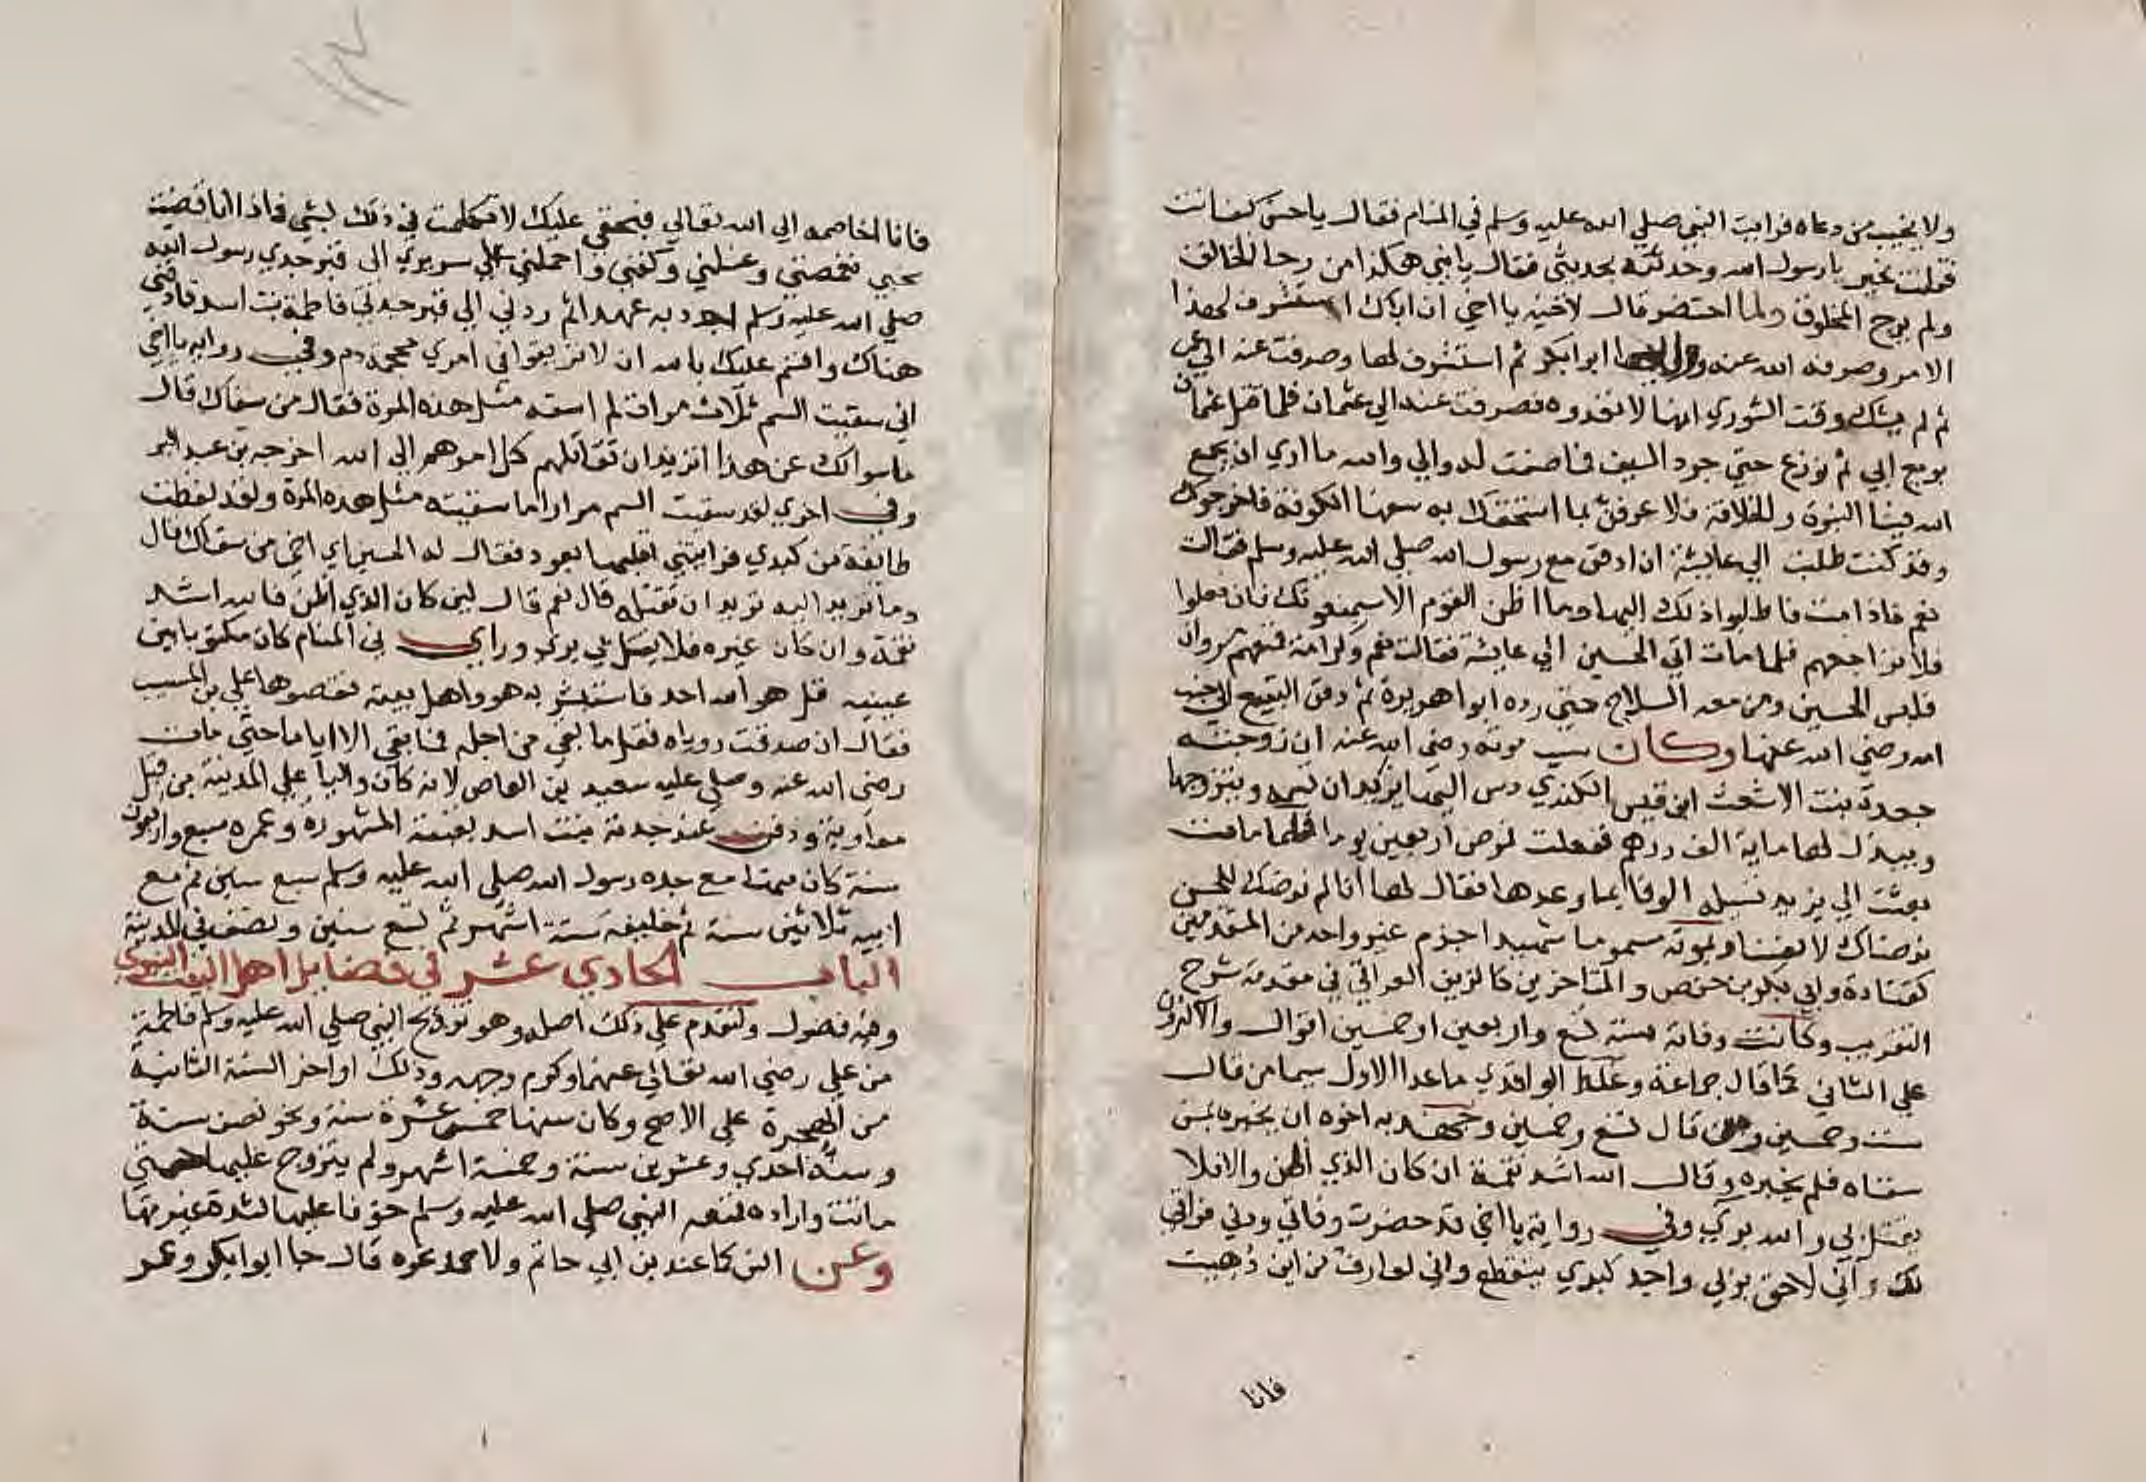 ولا يخيب من دعاه فرايت النبي صلي الله عليه وسلم في المنام فقال يا حسن كيف انت
فقلت بخير يا رسول الله وحدثته بحديثي فقال يا بني هكذا من رجا الخالق
ولم يرج المخلوق ولما احتضر قال لاخيه يا اخي ان اباك استشرف لهذا
الامر وصرفه الله عنه ووليها ابوابكر ثم استشرف لها وصرفت عنه الي عمر
ثم لم يشك وقت الشوري انها لا تعدوه فصرفت عنه الي عثمان فلما قتل عثمان
بويع ابي ثم نوزع حتي جرد السيف فما صفت له والي والله ما اري ان يجمع
الله فينا النبوة والخلافة فلا عرفن بما استخفك به سفها الكوفة فاخرجوك
وقد كنت طلبت الي عايشة ان ادفن مع رسول الله صلي الله عليه وسلم فقالت
نعم فاذا مت فاطلبوا ذلك اليها وما اظن القوم الا سيمنعونك فان فعلوا
فلا تراجعهم فلما مات اتي الحسين الي عايشة فقالت نعم وكرامة فمنعهم مروان
فلبس الحسين ومن معه السلاح حتي رده ابوا هريرة ثم دفن البقيع الي جنب
امه رضي الله عنها وكان سبب موته رضي الله عنه ان زوجته
جعدة بنت الاشعث ابن قيس الكندي دس اليها يزيد ان تسمه ويتزوجها
ويبذل لها ماية الف درهم ففعلت فمرض اربعين يوما فلما مات
بعثت الي يزيد تسيله الوفا بما وعدها فقال لها انا لم نرضك للحسن
نرضاك لانفسنا وبموته مسموما شهيدا جزم غير واحد من المتقدمين
كقتادة وابي بكر بن حفص والمتاخرين كالزين العراقي في مقدمة شرح
التقريب وكانت وفاته سنة تسع واربعين او خمسين اقوال والاكثرون
علي الثاني كما قال جماعة وغلط الواقدي ما عدا الاول سيما من قال
ست وخمسين ومن قال تسع وخمسين وجهد به اخوه ان يخبره بمن
سقاه فلم يخبره وقال الله اشد نقمة ان كان الذي اظن والا فلا
يقتل بي والله بري وفي رواية يا اخي قد حضرت وفاتي ودني فراقي
لك واني لاحق بربي واجد كبدي يتقطع واني لعارف من اين دهيت
فانا
فانا اخاصمه الي الله تعالي فبحقي عليك لا تكلمت في ذلك بشي فاذا انا قضيت
نحبي فقمصني وغسلني وكفني واحملني علي سريري الي قبر جدي رسول الله
صلي الله عليه وسلم اجدد به عهدا ثم ردني الي قبر جدتي فاطمة بنت اسد فادفني
هناك واقسم عليك بالله ان لا تريقوا في امري محجمة دم وفي رواية يا اخي
اني سقيت السم ثلاث مرات لم اسقه مثل هذه المرة فقال من سقاك قال
ما سوالك عن هذا اتريد ان تقاتلهم كل امرهم الي الله اخرجه بن عبد البر
وفي اخري لقد سقيت السم مرارا ما سقيته مثل هذه المرة ولقد لفظت
طايفة من كبدي فرايتني اقلبها بعود فقال له الحسين اي اخي من سقاك قال
وما تريد اليه تريد ان تقتله قال نعم قال لين كان الذي اظن فالله اشد
نقمة وان كان غيره فلا يقتل بي بري وراي في المنام كان مكتوبا بين
عينيه قل هو الله احد فاستبشر به هو واهل بيته فقصوها علي بن المسيب
فقال ان صدقت روياه فقل ما بقي من اجله فما بقي الا اياما حتي مات
رضي الله عنه وصلي عليه سعيد بن العاص لانه كان واليا علي المدينة من قبل
معاوية ودفن عند جدته بنت اسد بقبته المشهورة وعمره سبع واربعون
سنة كان منها مع جده رسول الله صلي الله عليه وسلم سبع سنين ثم مع
ابيه ثلاثين سنة ثم خليفة ستة اشهر ثم تسع سنين ونصف في المدينة
الباب الحادي عشر في فضايل اهل البيت النبوي
وفيه فصول ولنقدم علي ذلك اصله وهو تزويج النبي صلي الله عليه وسلم فاطمة
من علي رضي الله تعالي عنهما وكرم وجهه وذلك اواخر السنة الثانية
من الهجرة علي الاصح وكان سنها خمس عشرة سنة ونحو نصف سنة
وسنه احدي وعشرين سنة وخمسة اشهر ولم يتزوج عليها حتي
ماتت واراده فمنعه النبي صلي الله عليه وسلم خوفا عليها لشدة غيرتها
وعن انس كما عند بن ابي حاتم ولاحمد نحوه قال جا ابوا بكر وعمر